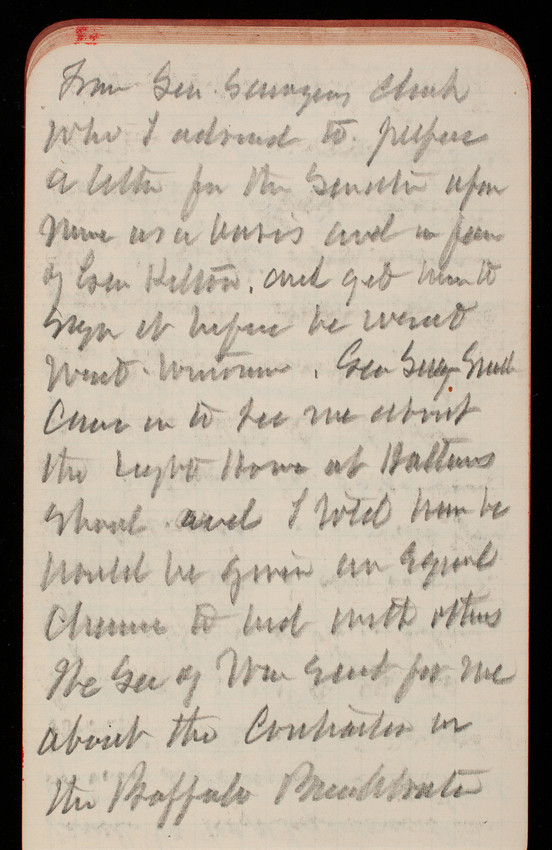 from Sen Sawyers clerk
who I advised to prepare
a letter for the Senator upon
mine as a basis and in favor
of Gen Kelton, and get him to
sign it before he went
West tomorrow. Gen Smith
came in to see me about
the Light House at
Shoal and I told him he
would be given an equal
chance to bid with others
The Sec of War sent for me
about the Contractor in
the Buffalo Breakwater